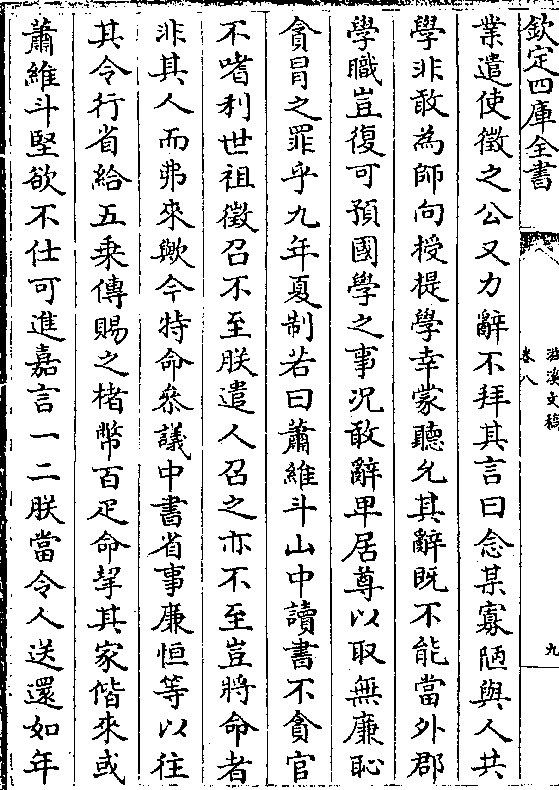 欽定四庫全書
滋溪文稿
卷八
九
業遣使徵之公又力辭不拜其言曰念某寡陋與人共
學非敢為師向授提學幸蒙聽允其辭既不能當外郡
學職豈復可預國學之事况敢辭卑居尊以取無廉恥
貪冒之罪乎九年夏制若曰蕭維斗山中讀書不貪官
不嗜利世祖徵召不至朕遣人召之亦不至豈將命者
非其人而弗來歟今特命叅議中書省事廉恒等以往
其令行省給五乗傳賜之楮幣百疋命挈其家偕來或
蕭維斗堅欲不仕可進嘉言一二朕當令人送還如年